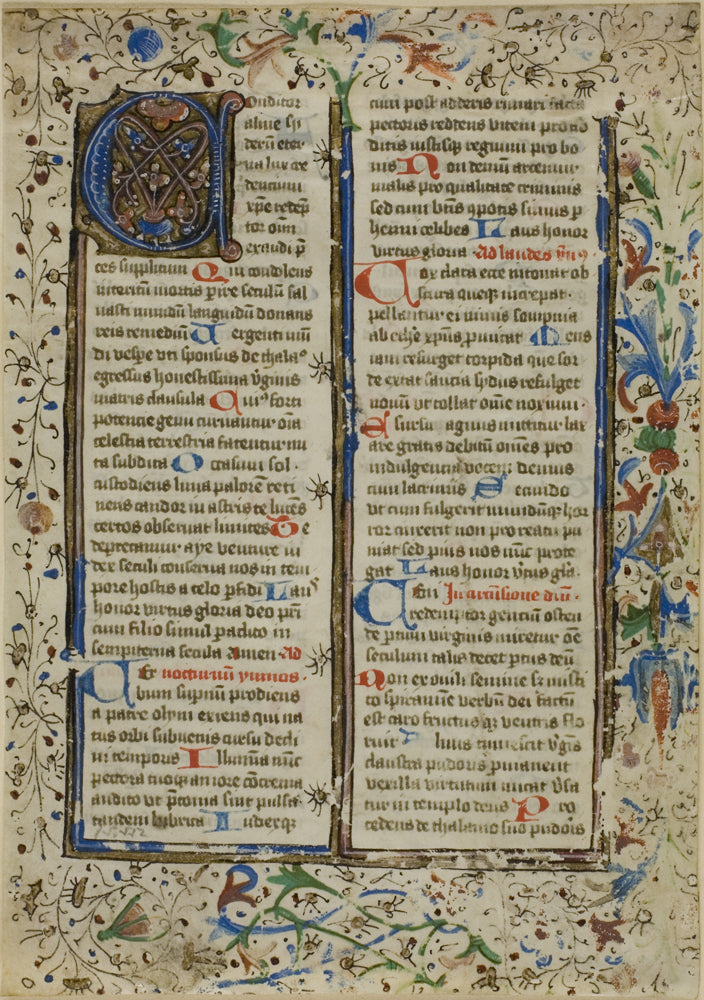 Conditor
alme sy
derū eter
na lux cre
dentium
xpe redēp
tor om̄
exaudi p̄
ces supplicum Qui condolens
interitum mortis p̄ire seculūm sal
uasti mundūm languidūm donans
reis remediūm Uergenti mūn
di vespe vti sponsus de thalaº
egressus honestissima v̄ginis
matris clausula Cuiꝰ forti
potencie genu curuantur om̄ia
celestia terrestria fatentur nu
tu subdita Occasum sol
custodiens luna palorem reti
nens candor in astris relucēs
certos obseruat limites Te
deprecamur aye venture iu
dex seculi conserua nos in tem
pore hostis a telo p̄fidi Lausͥ
honor virtus gloria deo pr̄i
cum filio simul paclito in
sempiterna secula Amen Ad
Uer nocturnūm ymnos
bum supnūm prodiens
a patre olym exiens qui na
tus orbi subuenis cursu decli
ui temporis Illumia nūnc
pectora tuoqꝫ amore cōcrema
audito vt p̄conia sint pulsa
tandem lubrica Iudexqꝫ
cum post aderis rimari facta
pectoris reddens vicem pro ab
ditis iustisqꝫ regnum pro bo
nis Non demum artemur
malis pro qualitate criminis
sed cum btīs ꝯpotes simus p
henni celibes Laus honor
virtus gloria Ad laudes ym̄ꝰ
Uox clara ecce intonat ob
scura queqꝫ increpat
pellantur eminus sompnia
ab ethe xpūs p̄micat Mens
iam resurget torpida que sor
de extat saucia sydus refulget
nouūm vt tollat om̄e noxium
Esursum agnus mittitur lax
are gratis debitūm om̄es pro
indulgentia vocem demus
cum lacrimis Secundo
vt cum fulgerit mundūmqꝫ hor
ror cinxerit non pro reatu pu
niat sed pius nos tūnc prote
gat Laus honor v̄tus gla
Ueni In aduēsione dnī
redemptor gencium osten
de partum virginis miretur om̄e
seculum talis decet ptus deūm
Non ex virili semine sꝫ misti
co spiramīe verbūm dei factūm
est caro fructusqꝫ ventris flo
ruit Aluus tumescit v̄gīs
claustra pudoris permanent
vexilla virtutum micat v̄sa
tur in templo deus Pro
cedens de thalamo suo pudoris